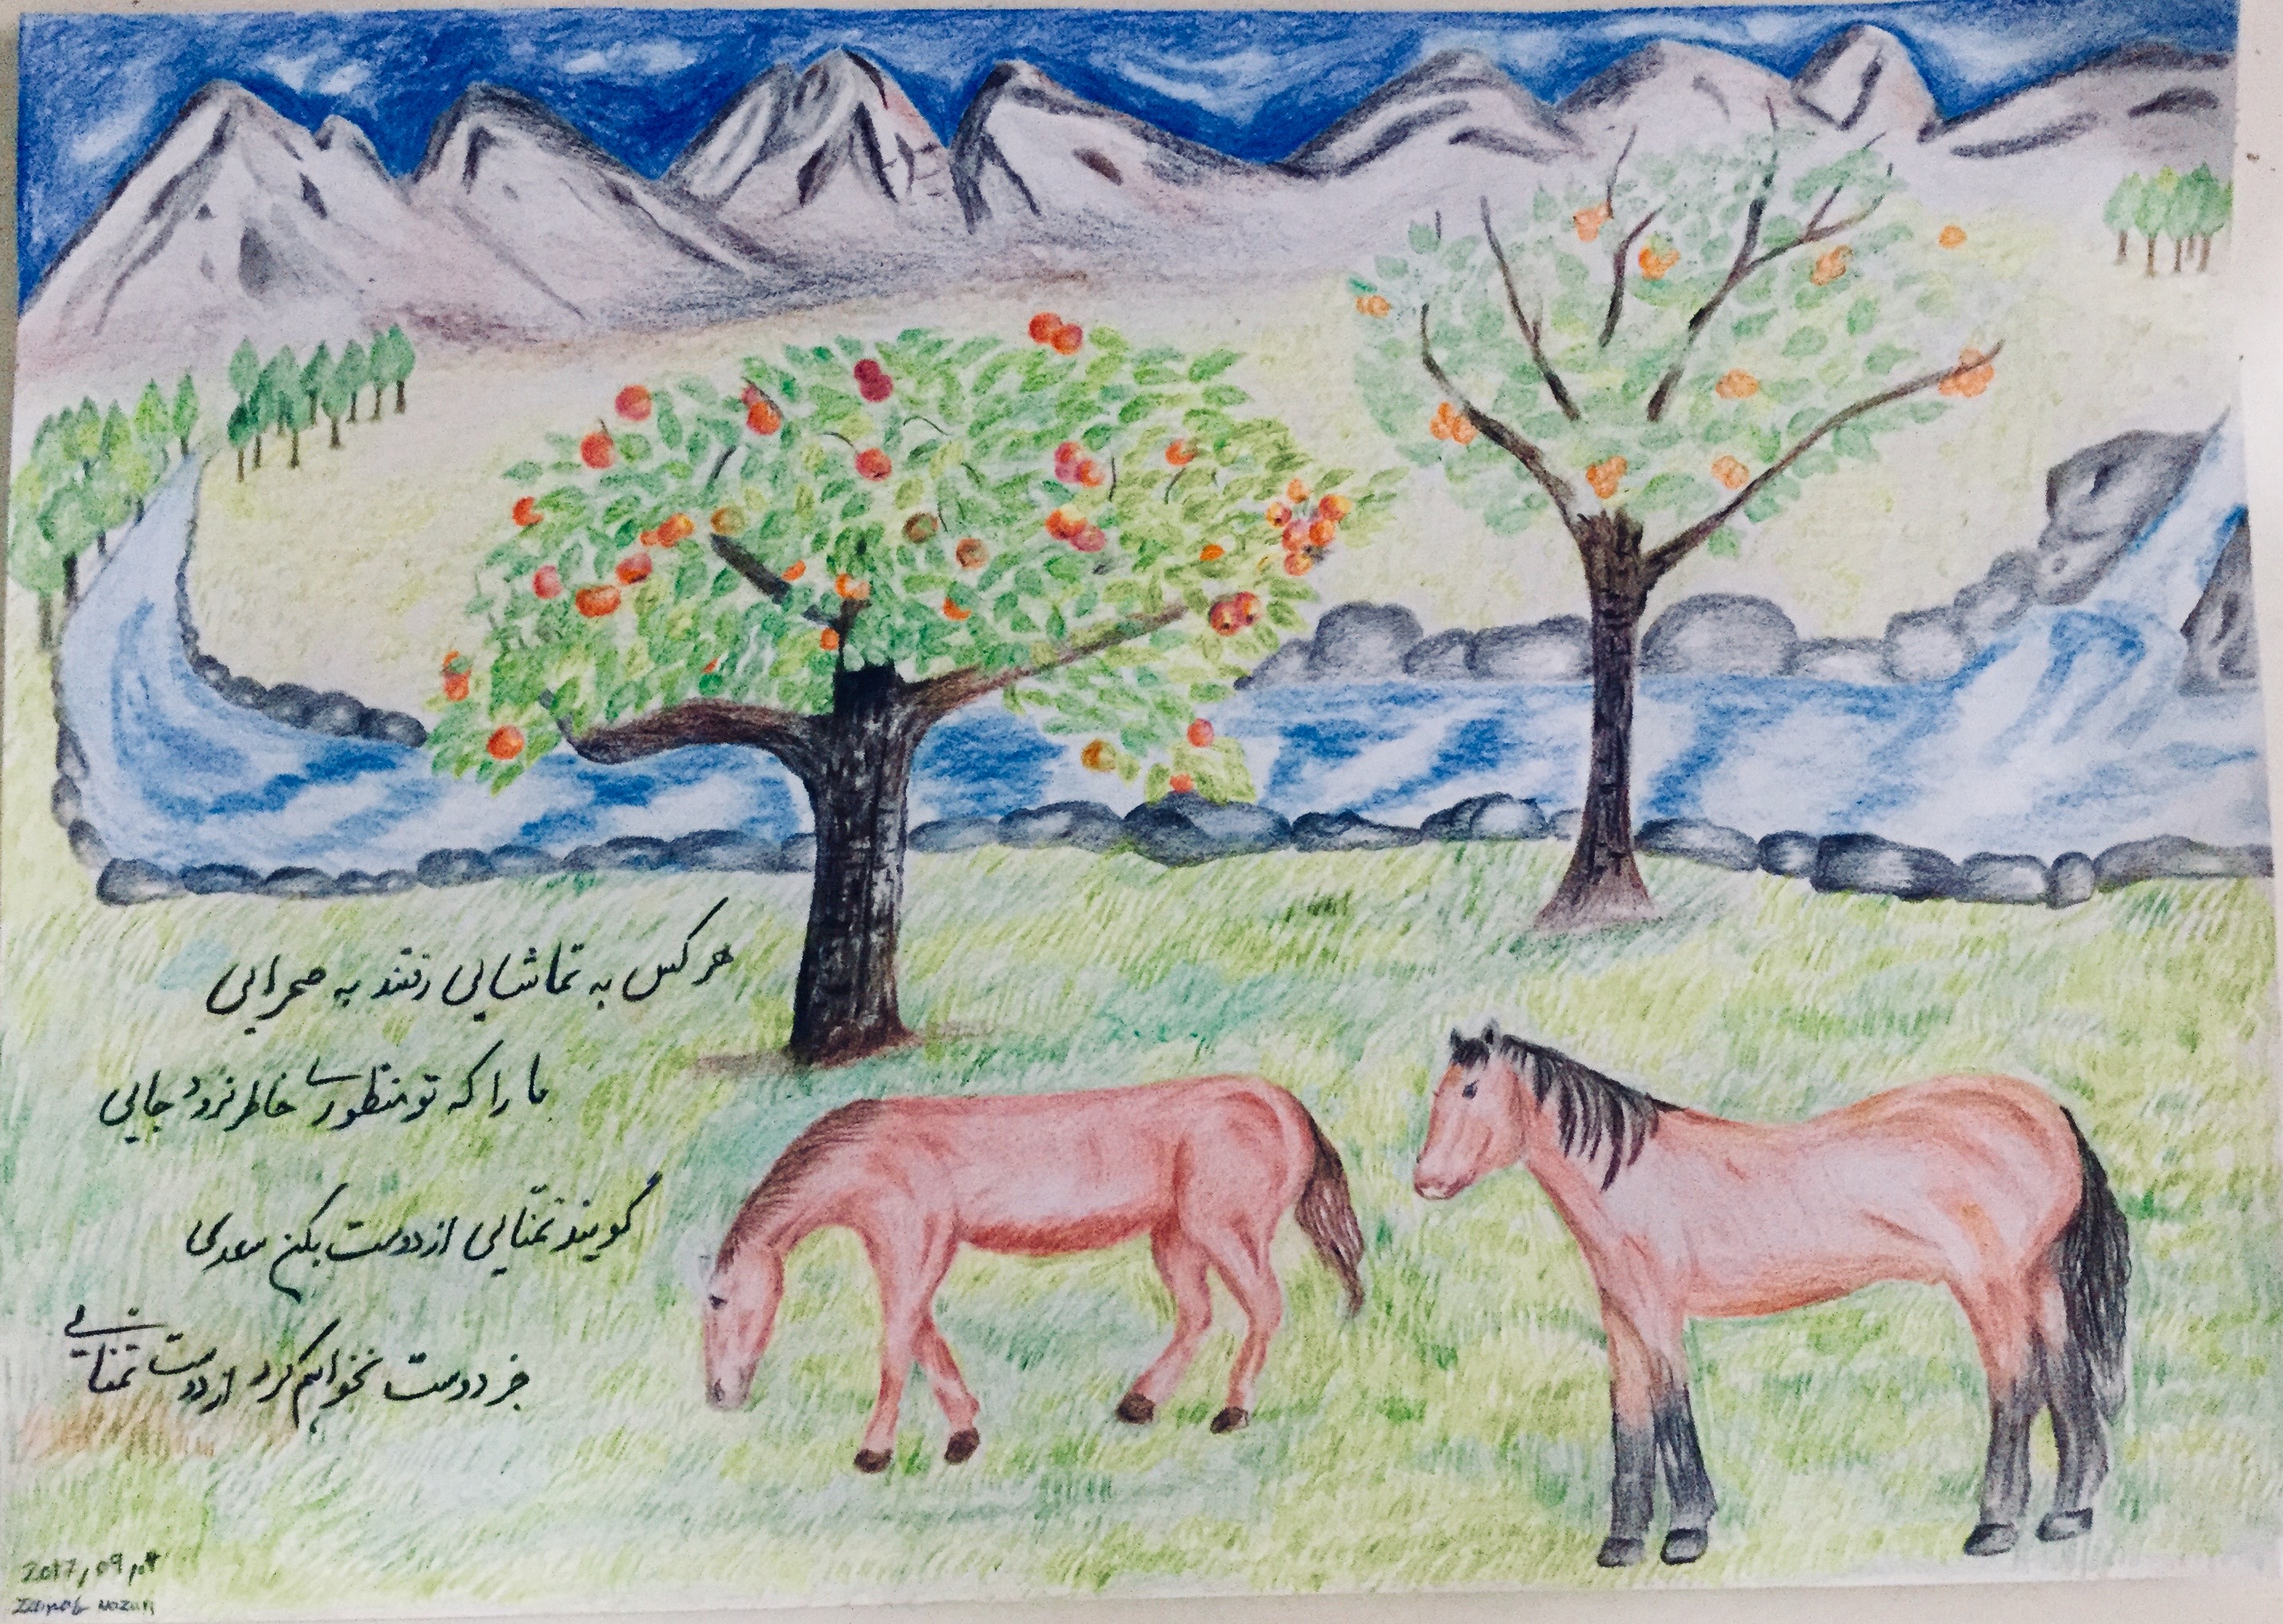 هر کس به تماشایی رفتند به صحرایی
ما را که تو منظوری خاطر نرود جایی
گویند تمنّایی از دوست بکن سعدی
جز دوست نخواهم کرد از دوست تمنایی
2017, 09
Zainab